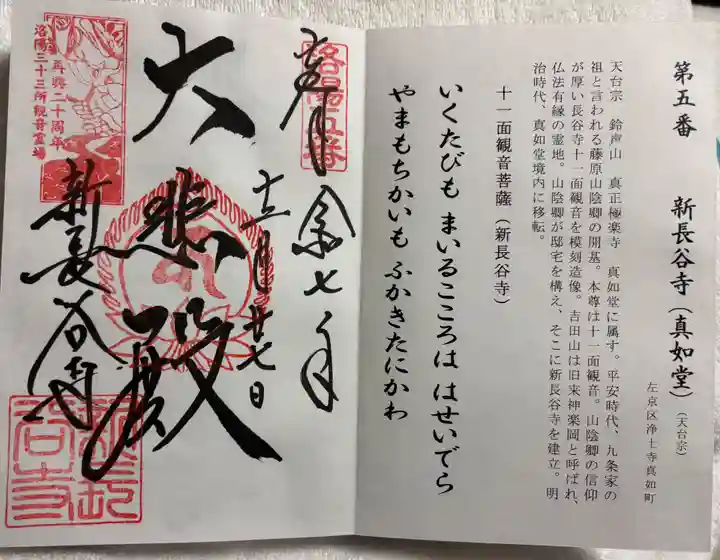 第五番　新長谷寺（真如堂）（天台宗）
左京区浄土寺真如町
天台宗　鈴声山　真正極楽寺　真如堂に属す。平安時代、九条家の
祖と言われる藤原山陰卿の開基。本尊は十一面観音。山陰卿の信仰
が厚い長谷寺十一面観音を模刻造像。吉田山は旧来神楽岡と呼ばれ、
仏法有縁の霊地。山陰卿が邸宅を構え、そこに新長谷寺を建立。明
治時代、真如堂境内に移転。
十一面観音菩薩（新長谷寺）
いくたびも　まいるこころは　はせいでら
やまもちかいも　ふかきたにかわ
洛陽五番
奉拝　令七年
十二月廿七日
大悲殿
新長谷寺
再興二十周年
洛陽三十三所観音霊場